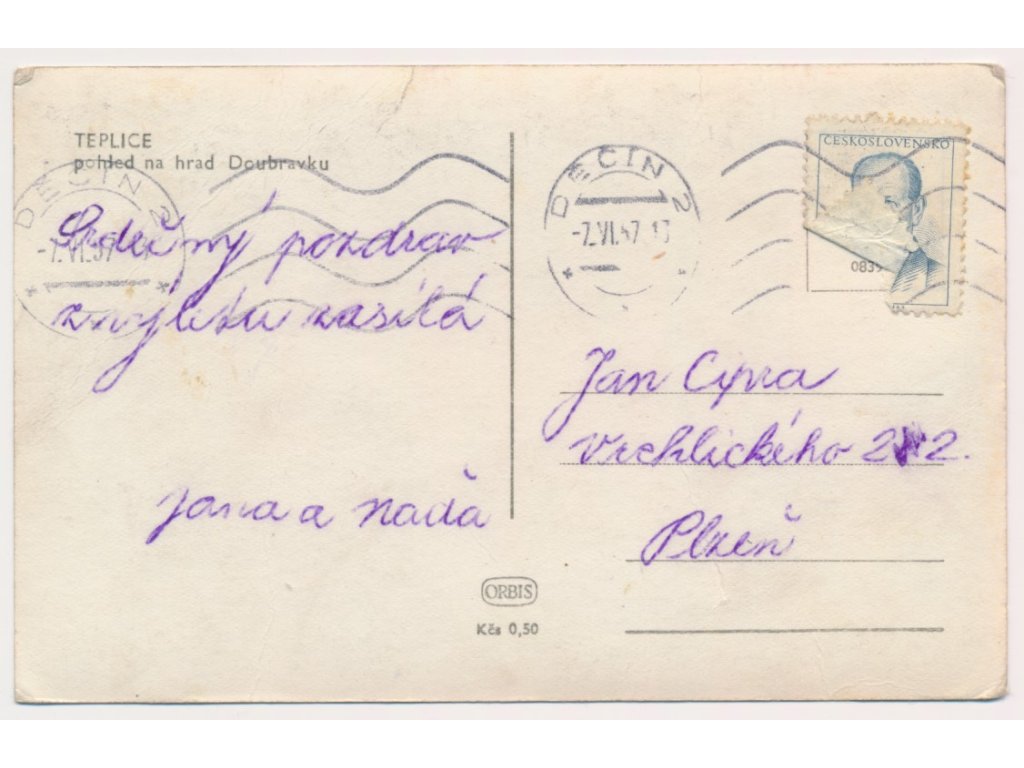 TEPLICE
pohled na hrad Doubravku
DĚČÍN 2
-7.VI.57
Srdečný pozdrav
z výletu zasílá
Jana a Naďa
DĚČÍN 2
-7.VI.57 13
ČESKOSLOVENSKO
0839
Jan Cipra
Vrchlického 2
Plzeň
ORBIS
Kčs 0,50